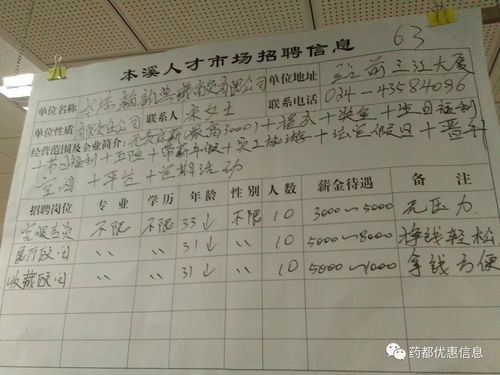 63
本溪人才市场招聘信息
单位性质
单位名称 本溪 商贸有限公司 单位地址 站前三江大厦
单位性质 有限责任公司 联系人 宋女士 联系电话 024-43584096
经营范围及企业简介: 无责底薪(最高3000)+提成+奖金+生日福利
+节日福利+五险+带薪年假+员工旅游+法定假日+晋升
空间+ +定期活动
招聘岗位 专业 学历 年龄 性别 人数 薪金待遇 备注
客服专员 不限 不限 35↓ 不限 10 3000~5000 无压力
顾问 〃 〃 31↓ 〃 10 5000~8000 挣钱轻松
收藏顾问 〃 〃 31↓ 〃 10 5000~1000 拿钱方便
药都优惠信息